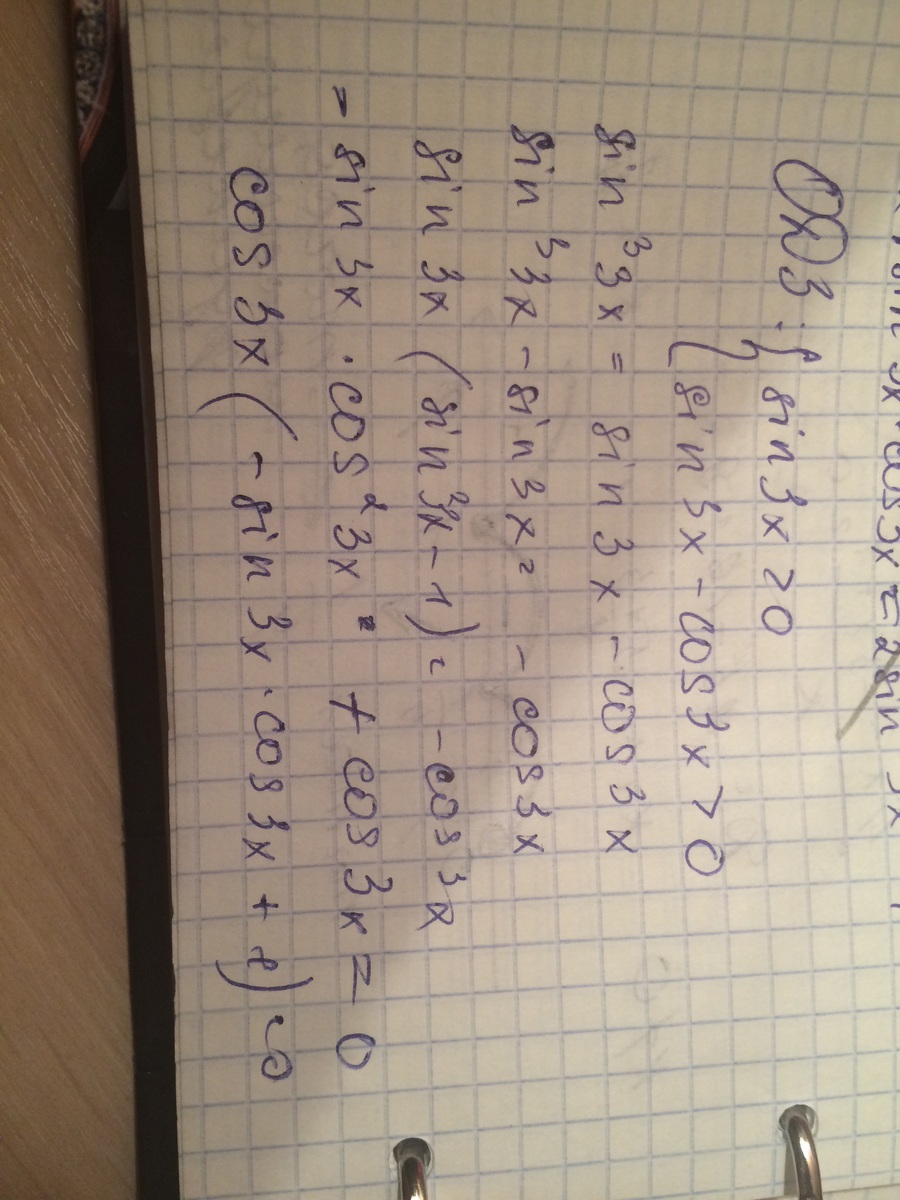 sin 3x · cos 3x = 2 sin 3x
ОДЗ: { sin 3x > 0
{ sin 3x - cos 3x > 0
sin³ 3x = sin 3x - cos 3x
sin³ 3x - sin 3x = - cos 3x
sin 3x (sin² 3x - 1) = - cos 3x
- sin 3x · cos² 3x + cos 3x = 0
cos 3x (- sin 3x · cos 3x + 1) = 0